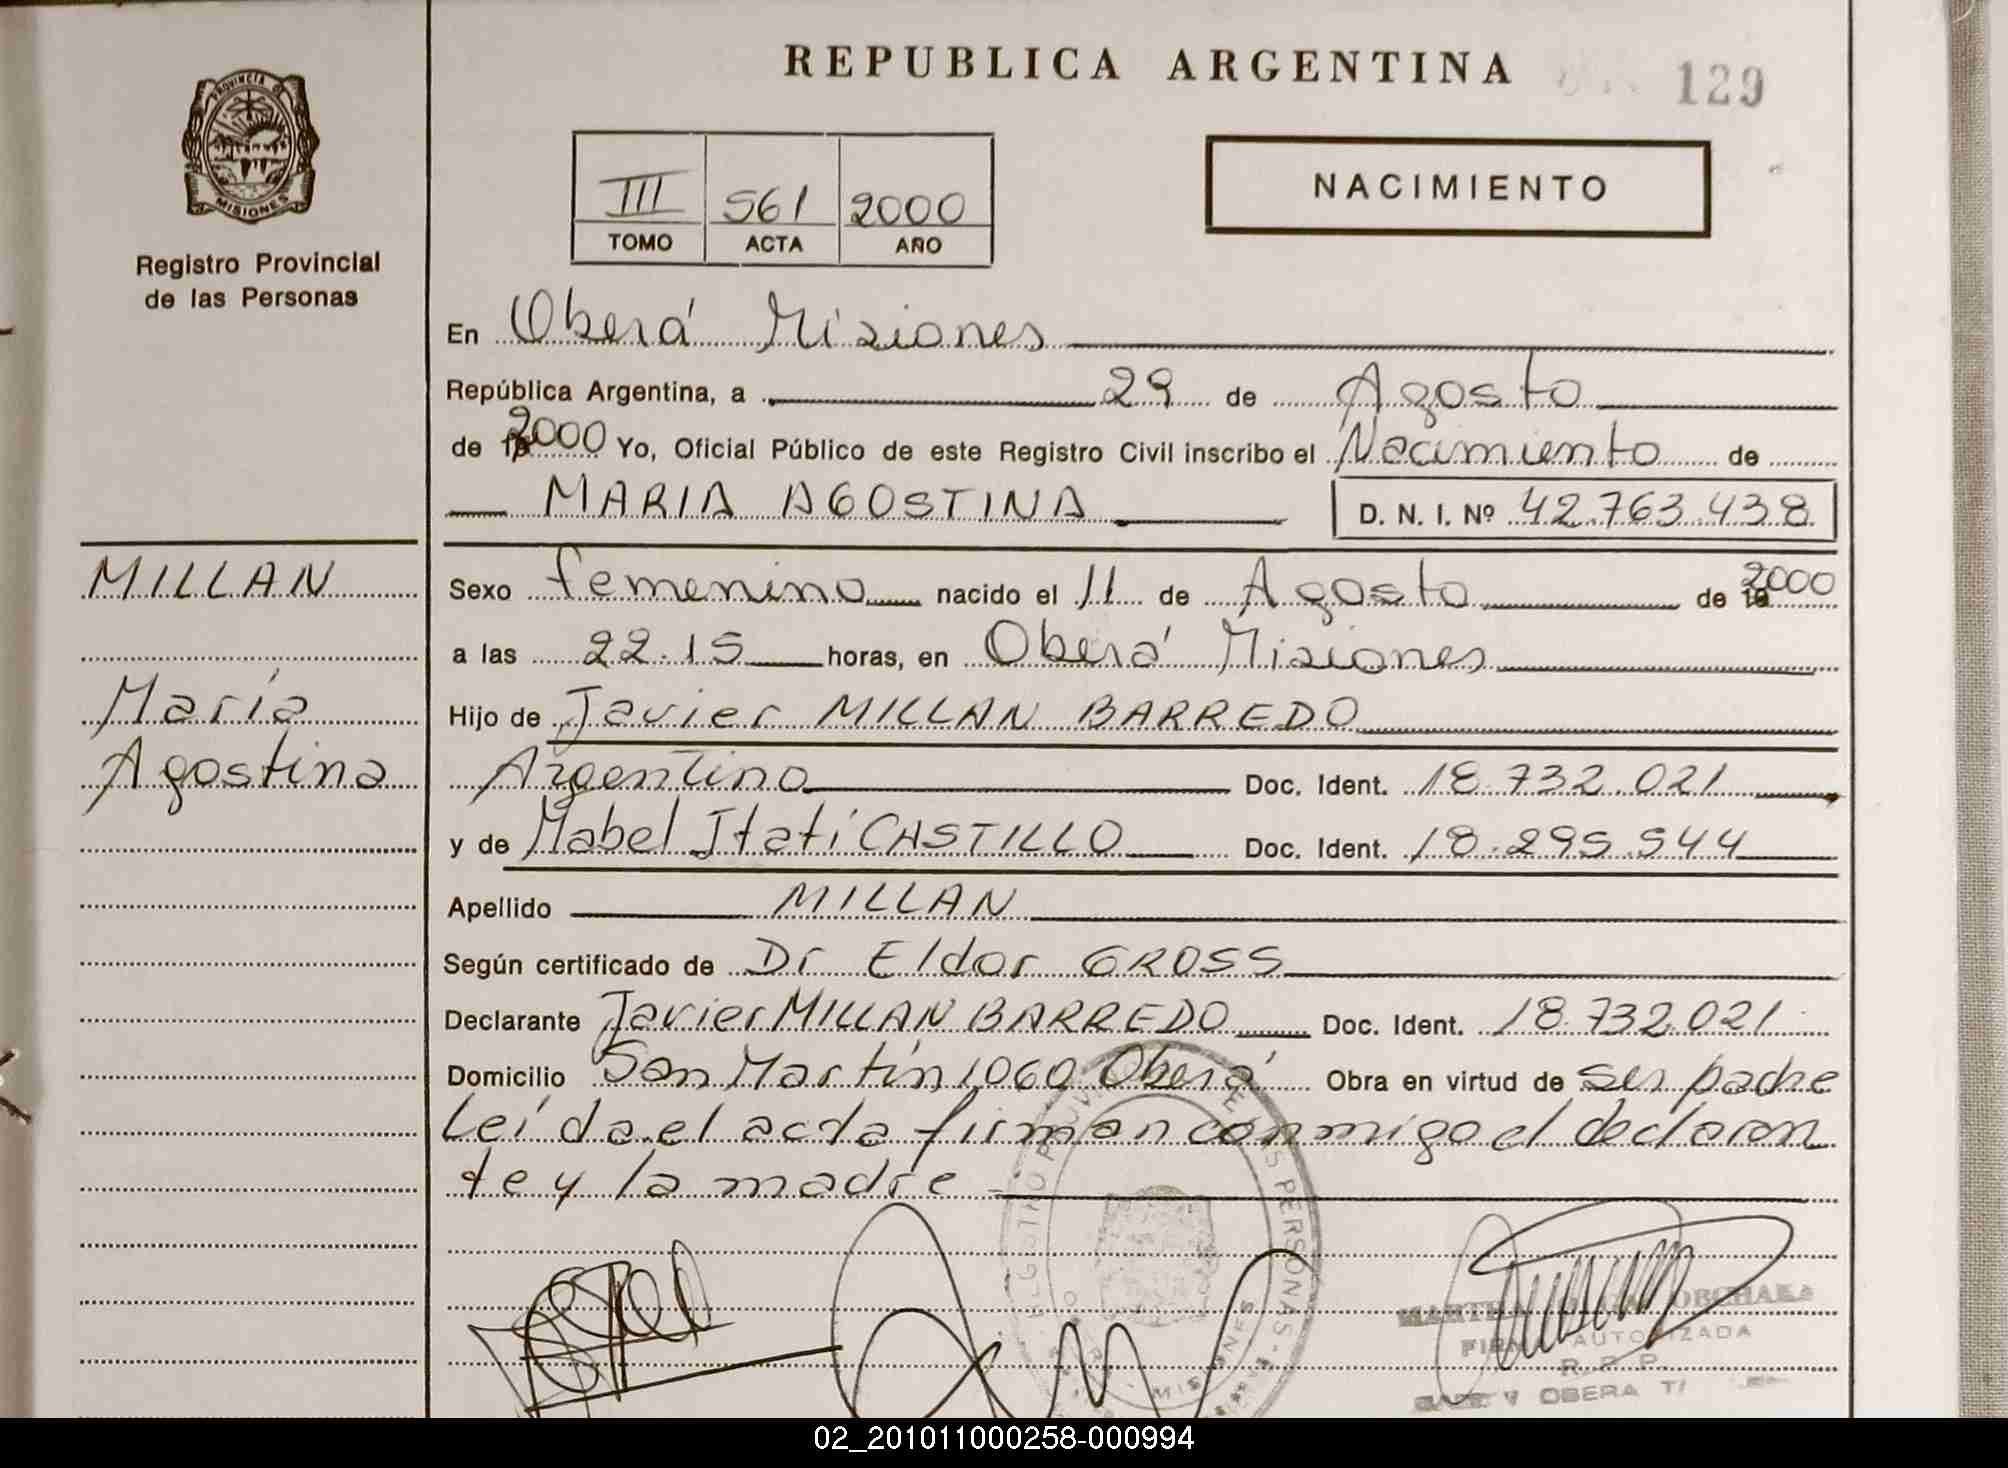 REPUBLICA ARGENTINA
129
PROVINCIA
MISIONES
Registro Provincial
de las Personas
III 561 2000
TOMO ACTA AÑO
NACIMIENTO
En Oberá Misiones
República Argentina, a 29 de Agosto
de 2000 Yo, Oficial Público de este Registro Civil inscribo el Nacimiento de
MARIA AGOSTINA D. N. I. Nº 42.763.438
MILLAN
María
Agostina
Sexo femenino nacido el 11 de Agosto de 2000
a las 22.15 horas, en Oberá Misiones
Hijo de Javier MILLAN BARREDO
Argentino Doc. Ident. 18.732.021
y de Mabel Itatí CASTILLO Doc. Ident. 18.295.544
Apellido MILLAN
Según certificado de Dr Eldor GROSS
Declarante Javier MILLAN BARREDO Doc. Ident. 18.732.021
Domicilio San Martín 1060 Oberá Obra en virtud de ser padre
Leída el acta firman conmigo el declaran
te y la madre
MARTHA
FIRMA AUTORIZADA
R. P. P.
OBERA
02_201011000258-000994